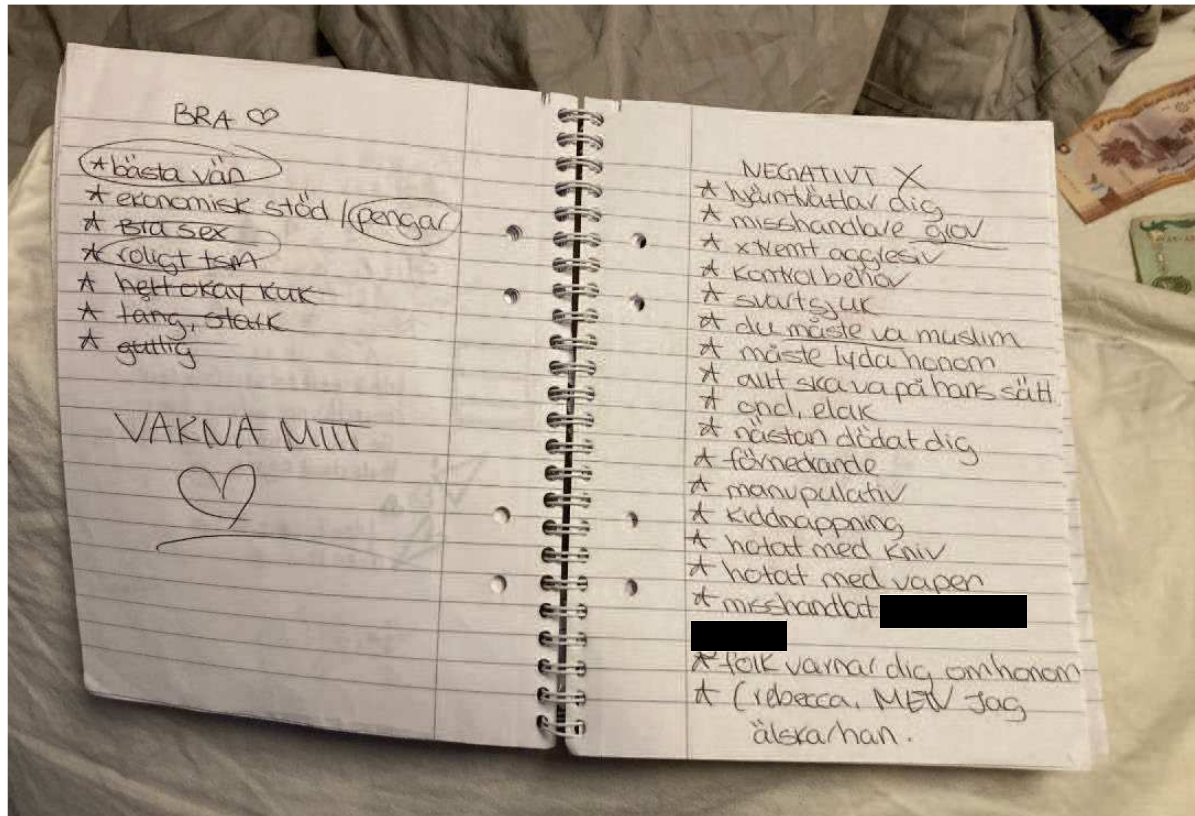 BRA ♡
* bästa vän
* ekonomisk stöd / pengar
* Bra sex
* roligt tsm
* helt okay kuk
* lång, stark
* gullig
VAKNA MITT
♡
NEGATIVT X
* hjärntvättar dig
* misshandlare grov
* xtremt aggresiv
* kontrol behov
* svartsjuk
* du måste va muslim
* måste lyda honom
* allt ska va på hans sätt
* ond, elak
* nästan dödat dig
* förnedrande
* manupulativ
* kiddnappning
* hotat med kniv
* hotat med vapen
* misshandlat
* folk varnar dig om honom
* (rebecca, MEN Jag
älskar han.